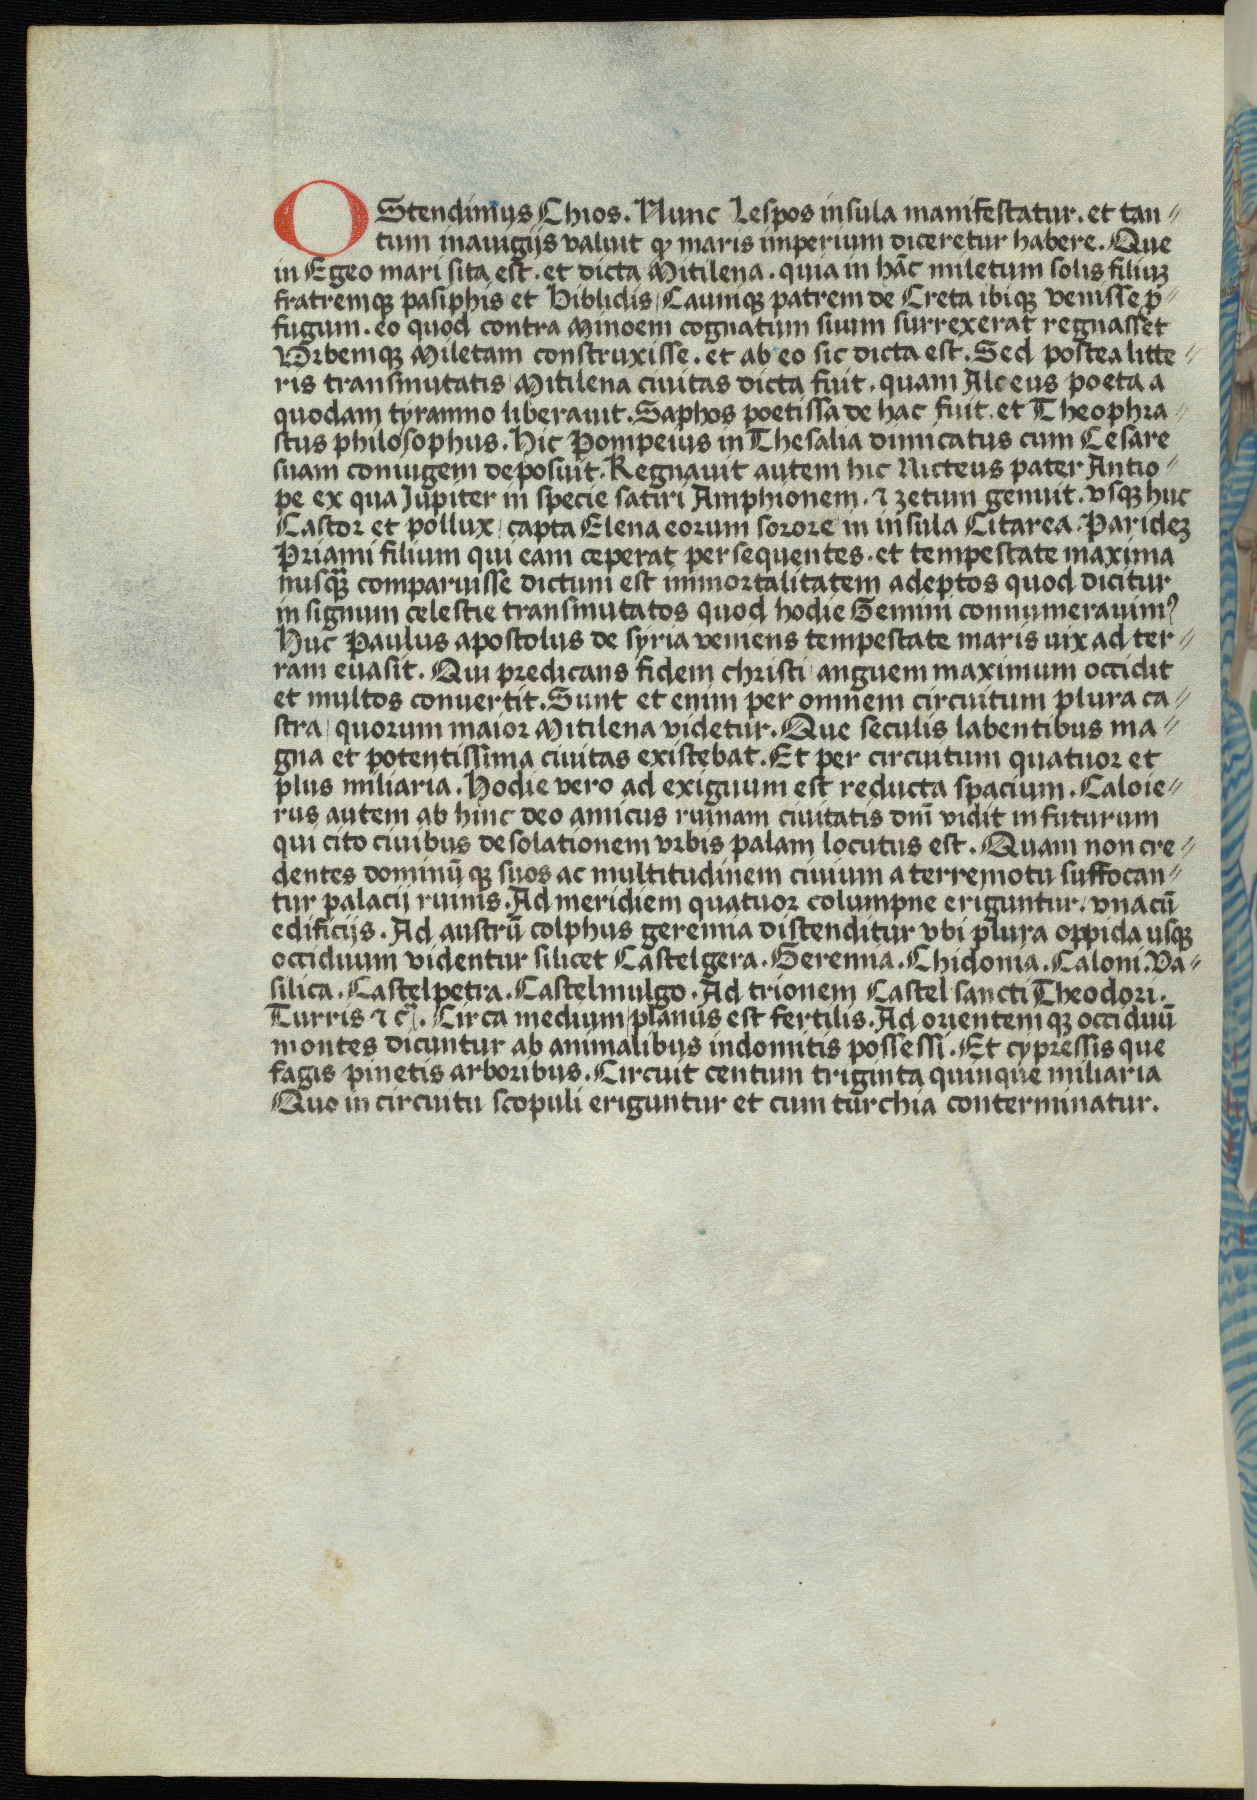 OStendimus Chios. Nunc Lespos insula manifestatur. et tan〃
tum inauigijs valuit qꝫ maris imperium diceretur habere. Que
in Egeo mari sita est. et dicta Mitilena. quia in hāc miletum solis filiuꝫ
fratremqꝫ pasiphis et Hiblidis / Caunqꝫ patrem de Creta ibiqꝫ venisse ꝓ〃
fugum. eo quod contra Minoem cognatum suum surrexerat regnasset
Vrbemqꝫ Miletam construxisse. et ab eo sic dicta est. Sed postea litte〃
ris transmutatis / Mitilena ciuitas dicta fuit. quam Alceus poeta a
quodam tyranno liberauit. Saphos poetissa de hac fuit. et Theophra〃
stus philosophus. Hic Pompeius in Thesalia dimicatus cum Cesare
suam coniugem deposuit. Regnauit autem hic Nicteus pater Antio〃
pe ex qua Jupiter in specie satiri Amphionem. ⁊ zetum genuit. vsqꝫ huc
Castor et pollux / capta Elena eorum sorore in insula Citarea. Parideꝫ
Priami filium qui eam ceperat persequentes. et tempestate maxima
nusqꝫ̄ comparuisse dictum est immortalitatem adeptos quod dicitur
in signum celestie transmutatos quod hodie Gemini connumerauimꝰ
Huc Paulus apostolus de syria veniens tempestate maris uix ad ter〃
ram euasit. Qui predicans fidem christi / anguem maximum occidit
et multos conuertit. Sunt et enim per omnem circuitum plura ca〃
stra / quorum maior Mitilena videtur. Que seculis labentibus ma〃
gna et potentissima ciuitas existebat. Et per circuitum quatuor et
plus miliaria. Hodie vero ad exiguum est reducta spacium. Caloie〃
rus autem ab hinc deo amicus ruinam ciuitatis dnī vidit in futurum
qui cito ciuibus desolationem vrbis palam locutus est. Quam non cre〃
dentes dominū qꝫ suos ac multitudinem ciuium a terremotu suffocan〃
tur palacij ruinis. Ad meridiem quatuor columpne eriguntur. vnacū
edificijs. Ad austrū colphus geremia distenditur vbi plura oppida usqꝫ
occiduum videntur silicet Castelgera. Geremia. Chidonia. Caloni. Va〃
silica. Castelpetra. Castelmulgo. Ad trionem Castel sancti Theodori.
Turris ⁊ cͣ. Circa medium / planus est fertilis. Ad orientem qꝫ occiduū
montes dicuntur ab animalibus indomitis possessi. Et cypressis que
fagis pinetis arboribus. Circuit centum triginta quinque miliaria
Quo in circuitu scopuli eriguntur et cum turchia conterminatur.